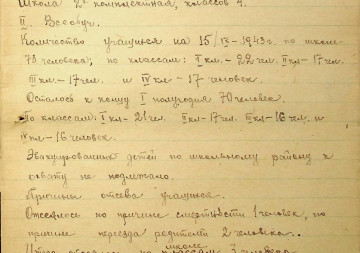 Школа 2х комплектная, классов 4.
II. Всеобуч.
Количество учащихся на 15/IX-1943г. по школе
73 человека, по классам: I кл. - 22 чел. II кл - 17 чел.
III кл - 17 чел. и IV кл - 17 человек
Осталось к концу I полугодия 70 человек.
По классам: I кл - 21 чел. II кл - 17 чел. III кл - 16 чел. и
IV кл - 16 человек.
Эвакуированных детей по школьному району к
охвату не подлежало.
Причины отсева учащихся.
Отсеялось по причине смертности 1 человек, по
причине переезда родителей 2 человека.
школе
по классам 3 человека